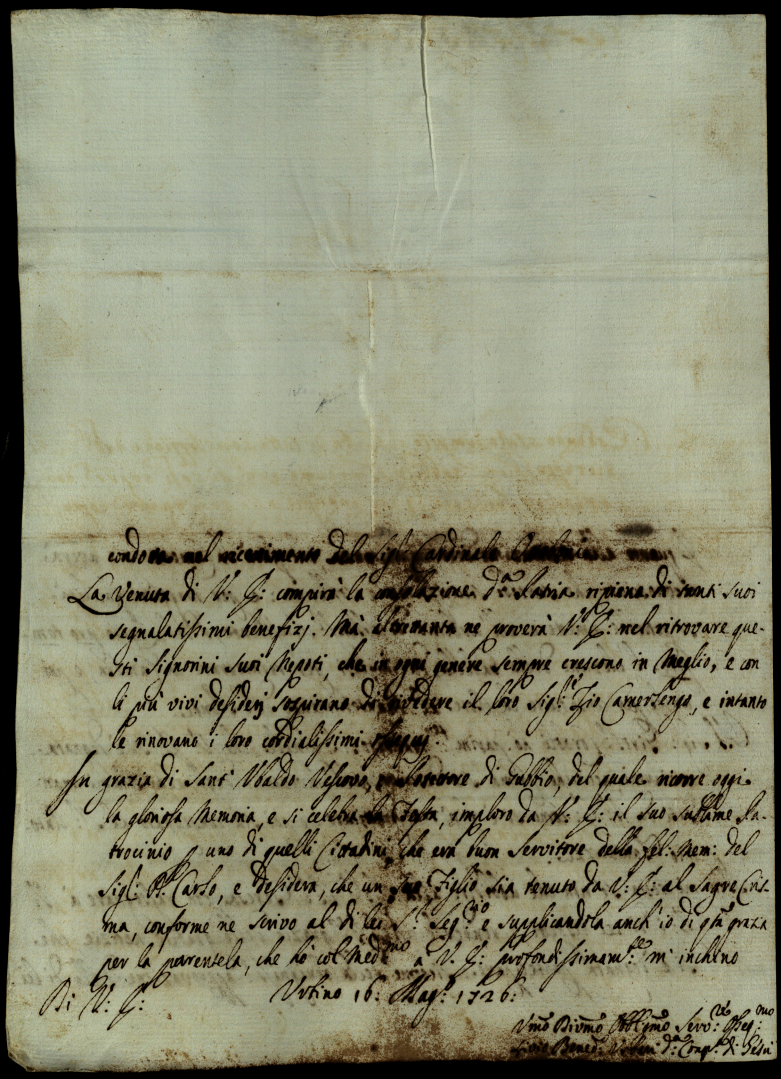 condotta nel ricevimento del Sig.r Cardinale
La Venuta di V: E: compirà la consolazione d.a Patria ripiena di tanti suoi
segnalatissimi benefizj. Mà altretanta ne proverà V: E: nel ritrovare que-
sti Signorini suoi Nepoti, che in ogni genere sempre crescono in meglio, e con
li più vivi desiderj sospirano di rivedere il loro Sig:r Zio Camerlengo, e intanto
le rinovano i loro cordialissimi ossequj.
In grazia di Sant' Ubaldo Vescovo, e Protettore di Gubbio, del quale ricorre oggi
la gloriosa memoria, e si celebra la Festa, imploro da V: E: il suo sublime Pa-
trocinio p uno di quelli Cittadini, che era buon servitore della fel: mem: del
Sig:r D. Carlo, e desidera, che un suo Figlio sia tenuto da V: E: al Sagro Cris-
ma, conforme ne scrivo al di lei S.r Seg.rio e supplicandola anch' io di q.ta grazia
per la parentela, che hò col med.mo a V: E: profondissimam.te m' inchino
Di V: E: Urbino 16: Mag.o 1726:
Vmo Divmo Obblmo Servo.re Osseq:mo
Bened: d.a Comp.a di Giesù